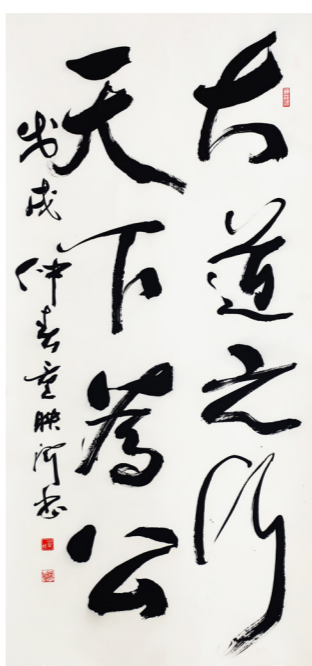 大道之行
天下為公
戊戌仲春童映河书